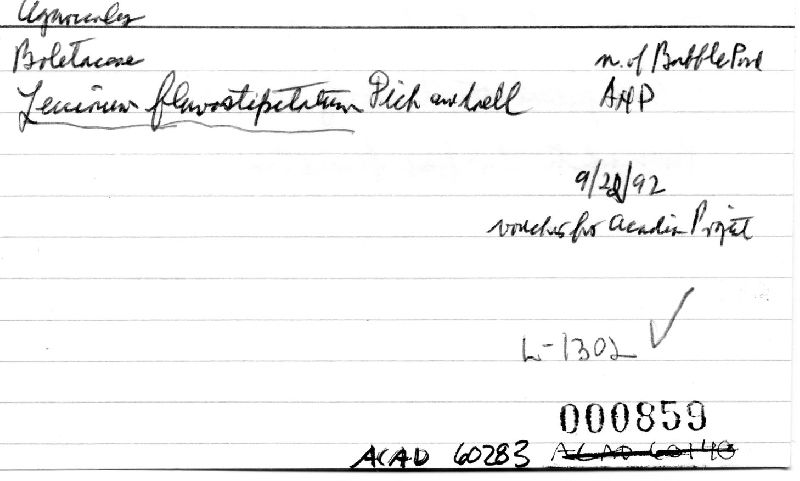 Agaricales
Boletaceae n. of Bubble Pond
Leccinum flavostipitatum Dick and Snell ANP
9/22/92
voucher for Acadia Projet
L-1302 ✓
000859
ACAD 60283 ACAD 60140